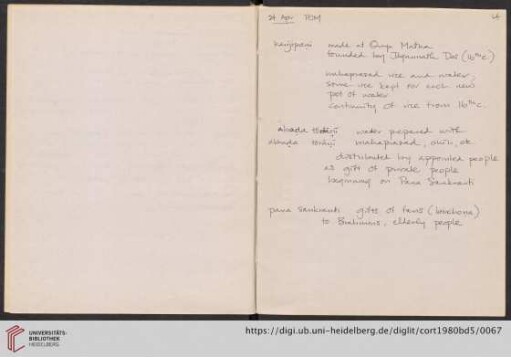 24 Apr PDM
made at Oriya Matha
founded by Jagannath Das (16th c)
mahaprasad rice and water,
some rice kept for each new
pot of water
continuity of rice from 16th c.
water prepared with
mahaprasad, etc
distributed by appointed people
as gift of private people
beginning on Pana Sankranti
pana sankranti gifts of fans
to Brahmins, elderly people
UNIVERSITÄTS-
BIBLIOTHEK
HEIDELBERG
https://digi.ub.uni-heidelberg.de/diglit/cort1980bd5/0067